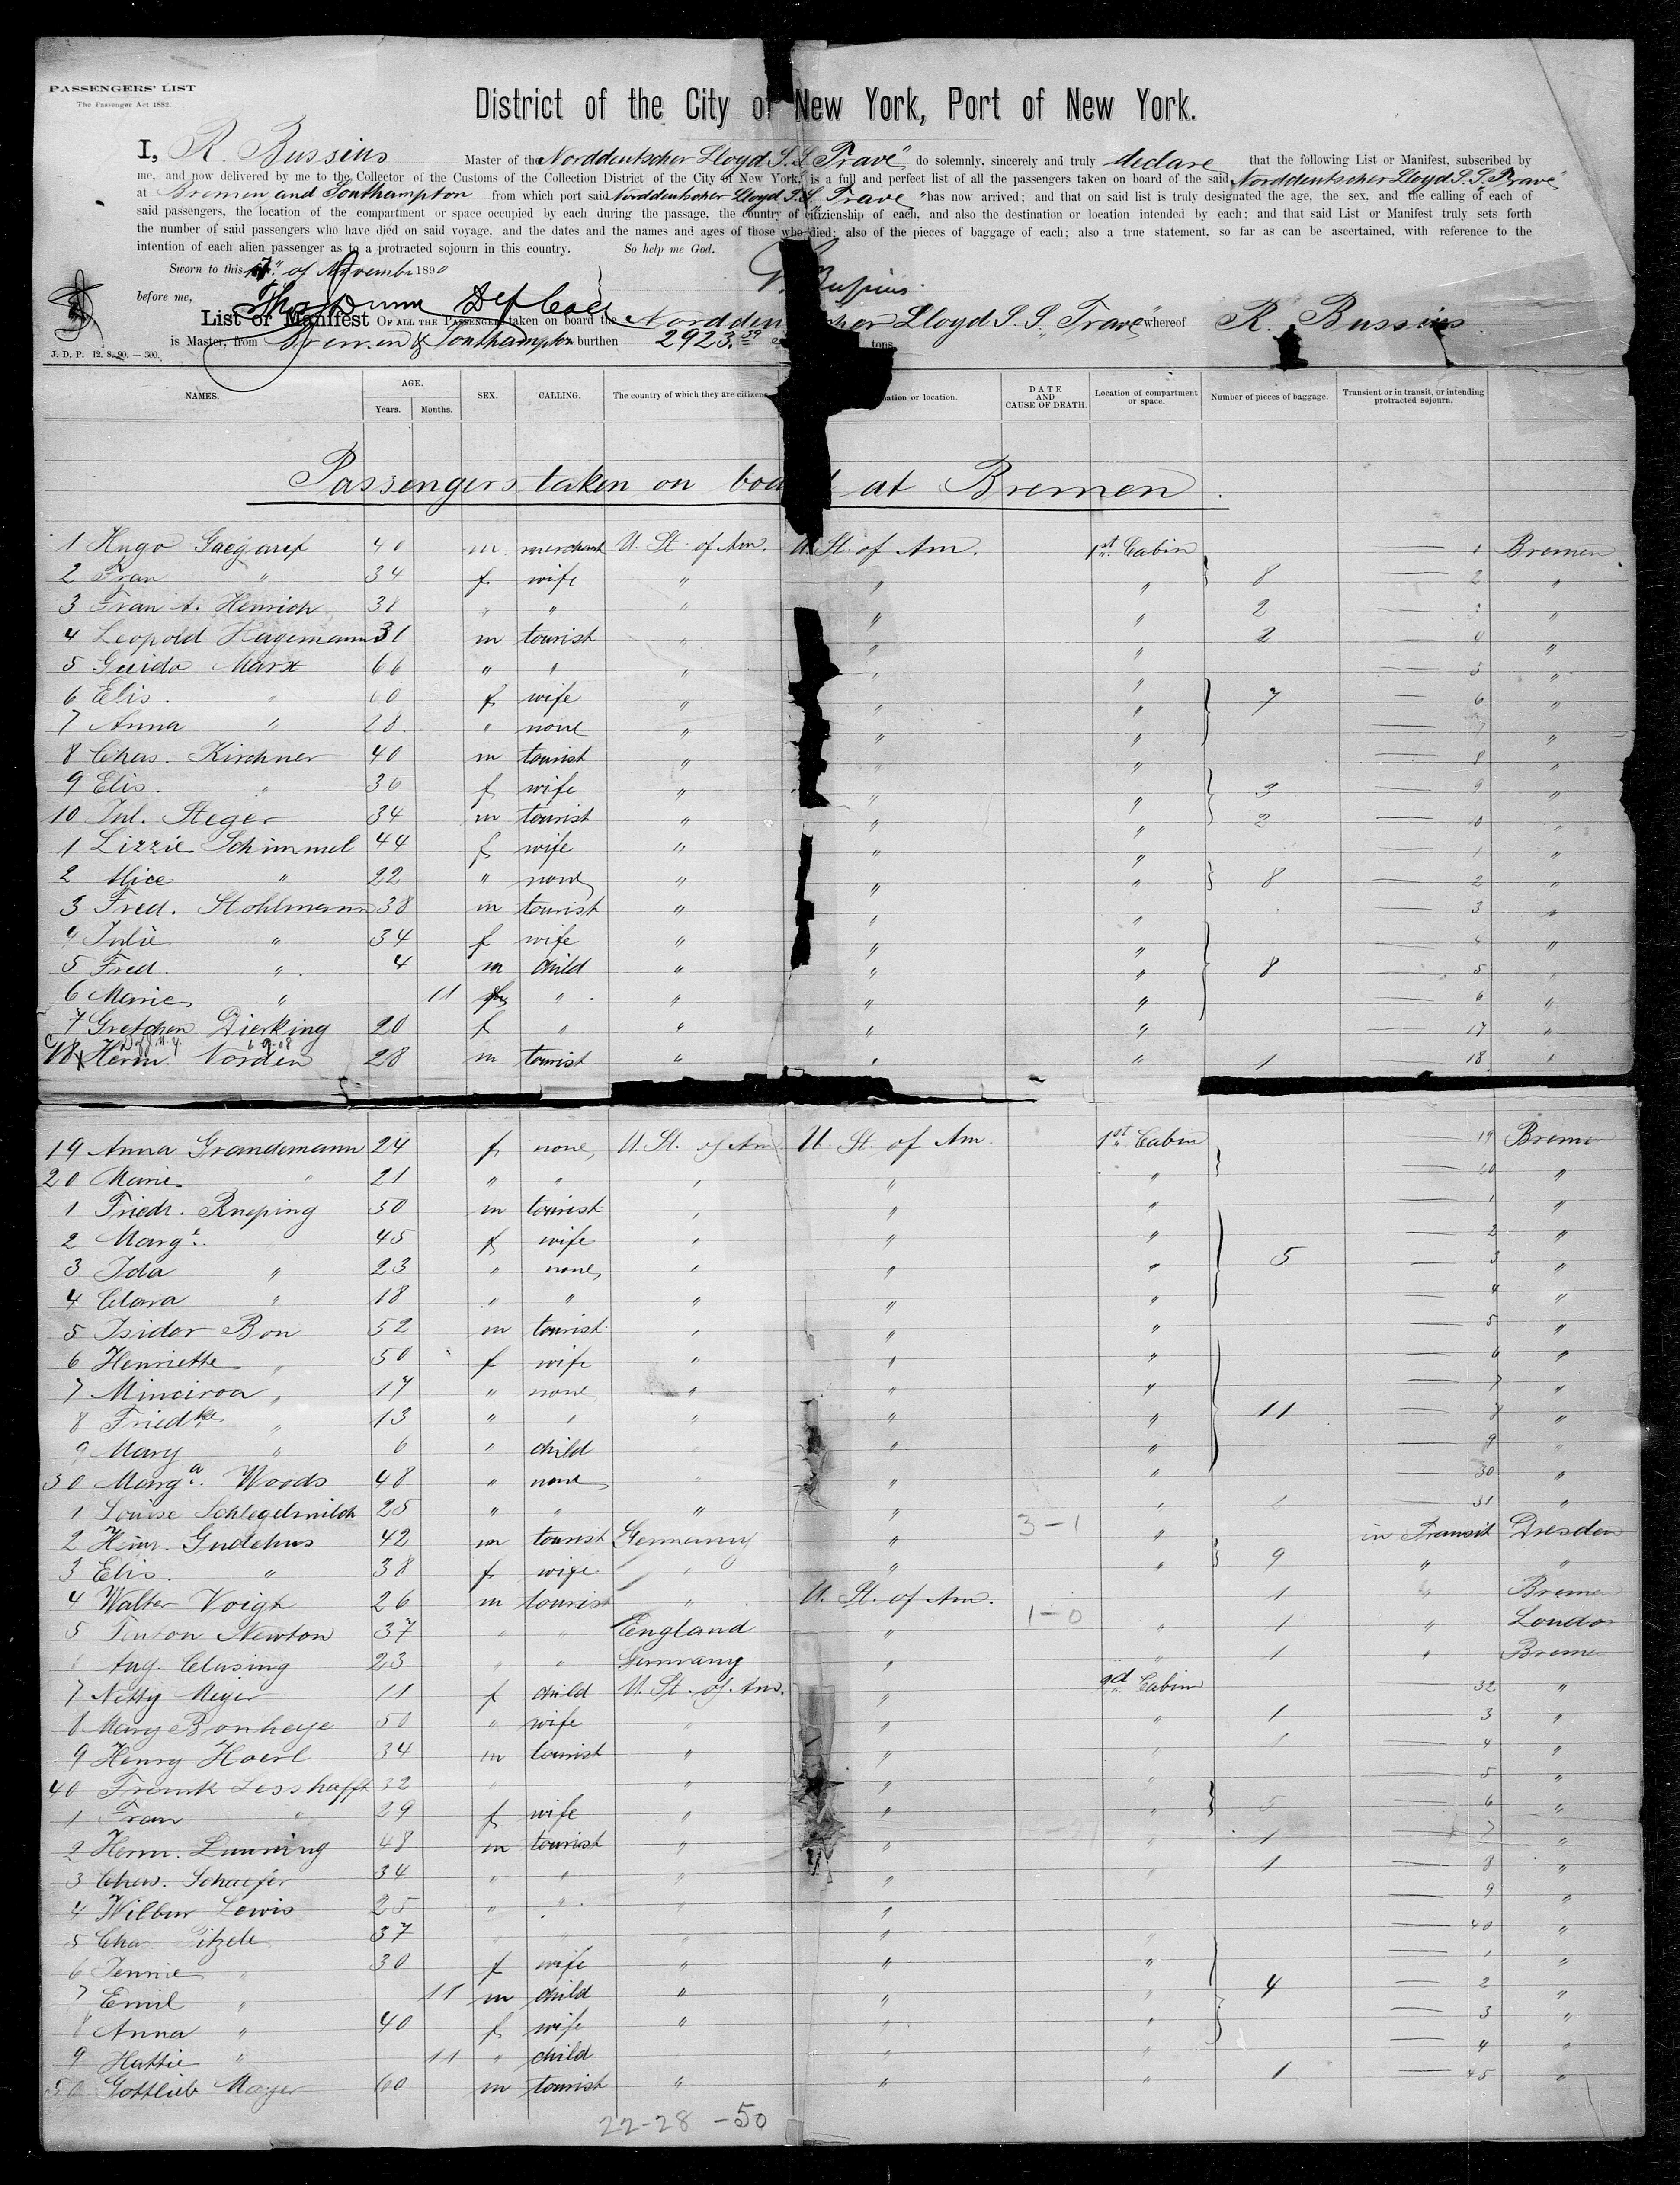 PASSENGERS' LIST
The Passenger Act 1882.
District of the City of New York, Port of New York.
I, R. Bussius Master of the Norddeutscher Lloyd S.S. "Trave" do solemnly, sincerely and truly declare that the following List or Manifest, subscribed by
me, and now delivered by me to the Collector of the Customs of the Collection District of the City of New York, is a full and perfect list of all the passengers taken on board of the said Norddeutscher Lloyd S.S. "Trave"
at Bremen and Southampton from which port said Norddeutscher Lloyd S.S. "Trave" has now arrived; and that on said list is truly designated the age, the sex, and the calling of each of
said passengers, the location of the compartment or space occupied by each during the passage, the country of citizienship of each, and also the destination or location intended by each; and that said List or Manifest truly sets forth
the number of said passengers who have died on said voyage, and the dates and the names and ages of those who died; also of the pieces of baggage of each; also a true statement, so far as can be ascertained, with reference to the
intention of each alien passenger as to a protracted sojourn in this country. So help me God.
Sworn to this of November 1890
Bussius.
before me, Dunn
List or Manifest OF ALL THE PASSENGERS taken on board the Norddeutscher Lloyd S.S. "Trave" whereof R. Bussius
is Master, from Bremen & Southampton burthen 2923.39 tons
J. D. P. 12. 8. 90. — 300.
NAMES. AGE. Years. Months. SEX. CALLING. The country of which they are citizens. nation or location. DATE AND CAUSE OF DEATH. Location of compartment or space. Number of pieces of baggage. Transient or in transit, or intending protracted sojourn.
Passengers taken on board at Bremen.
1 Hugo 40 m merchant U. St. of Am. U. St. of Am. 1st Cabin — 1 Bremen
2 Frau " 34 f wife " " " 8 — 2 "
3 Frau A. Henrich 38 " " " " " 2 — 3 "
4 Leopold Hagemann 31 m tourist " " " 2 — 4 "
5 Guido Marx 66 " " " " " — 5 "
6 Elis. " 60 f wife " " " 7 — 6 "
7 Anna " 28 " none " " " — 7 "
8 Chas. Kirchner 40 m tourist " " " — 8 "
9 Elis. " 36 f wife " " " 3 — 9 "
10 Jul. Steger 34 m tourist " " " 2 — 10 "
1 Lizzie Schimmel 44 f wife " " " — 1 "
2 Alice " 22 " none " " " 8 — 2 "
3 Fred. Stohlmann 38 m tourist " " " — 3 "
4 Julie " 34 f wife " " " — 4 "
5 Fred. " 4 m child " " " 8 — 5 "
6 Marie " 11 " " " " — 6 "
7 Gretchen Dierking 20 f " " " " — 17 "
18 Herm. Norden 28 m tourist " " " 1 — 18 "
19 Anna Grandemann 24 f none U. St. of Am. U. St. of Am. 1st Cabin — 19 Bremen
20 Marie " 21 " " " " " — 20 "
1 Friedr. Kneping 50 m tourist " " " — 1 "
2 Marge. 45 f wife " " " — 2 "
3 Ida " 23 " none " " " 5 — 3 "
4 Clara " 18 " " " " " — 4 "
5 Isidor Bon 52 m tourist " " " — 5 "
6 Henriette " 50 f wife " " " — 6 "
7 " 17 " none " " " — 7 "
8 Friedke " 13 " " " " " 11 — 8 "
9 Mary " 6 " child " " — 9 "
30 Marga. Woods 48 " none " " " — 30 "
1 Louise Schlegelmilch 25 " " " " " 1 — 31 "
2 Heinr. Gudehus 42 m tourist Germany " 3-1 " in Transit Dresden
3 Elis. " 38 f wife " " " 9 " "
4 Walter Voigt 26 m tourist " U. St. of Am. 1 " Bremen
5 Newton 37 " " England " 1-0 " 1 " London
Aug. Clasing 23 " " Germany " " 1 " Bremen
7 Netty Meyer 11 f child U. St. of Am. " 2d Cabin — 32 "
8 Mary Bonheye 50 " wife " " " 1 — 3 "
9 Henry Hoerl 34 m tourist " " " 1 — 4 "
40 Frank Lesshafft 32 " " " " — 5 "
1 Frau " 29 f wife " " " 5 — 6 "
2 Herm. Lanning 48 m tourist " " " 1 — 7 "
3 Chas. Schaefer 34 " " " " " 1 — 8 "
4 Wilbur Lewis 25 " " " " — 9 "
5 Chas. 37 " " " " " — 40 "
6 Jennie " 30 f wife " " " — 1 "
7 Emil " 11 m child " " " 4 — 2 "
8 Anna " 40 f wife " " " — 3 "
9 Hattie " 11 " child " " — 4 "
50 Gottlieb Mayer 60 m tourist " " " 1 — 45 "
22-28 -50